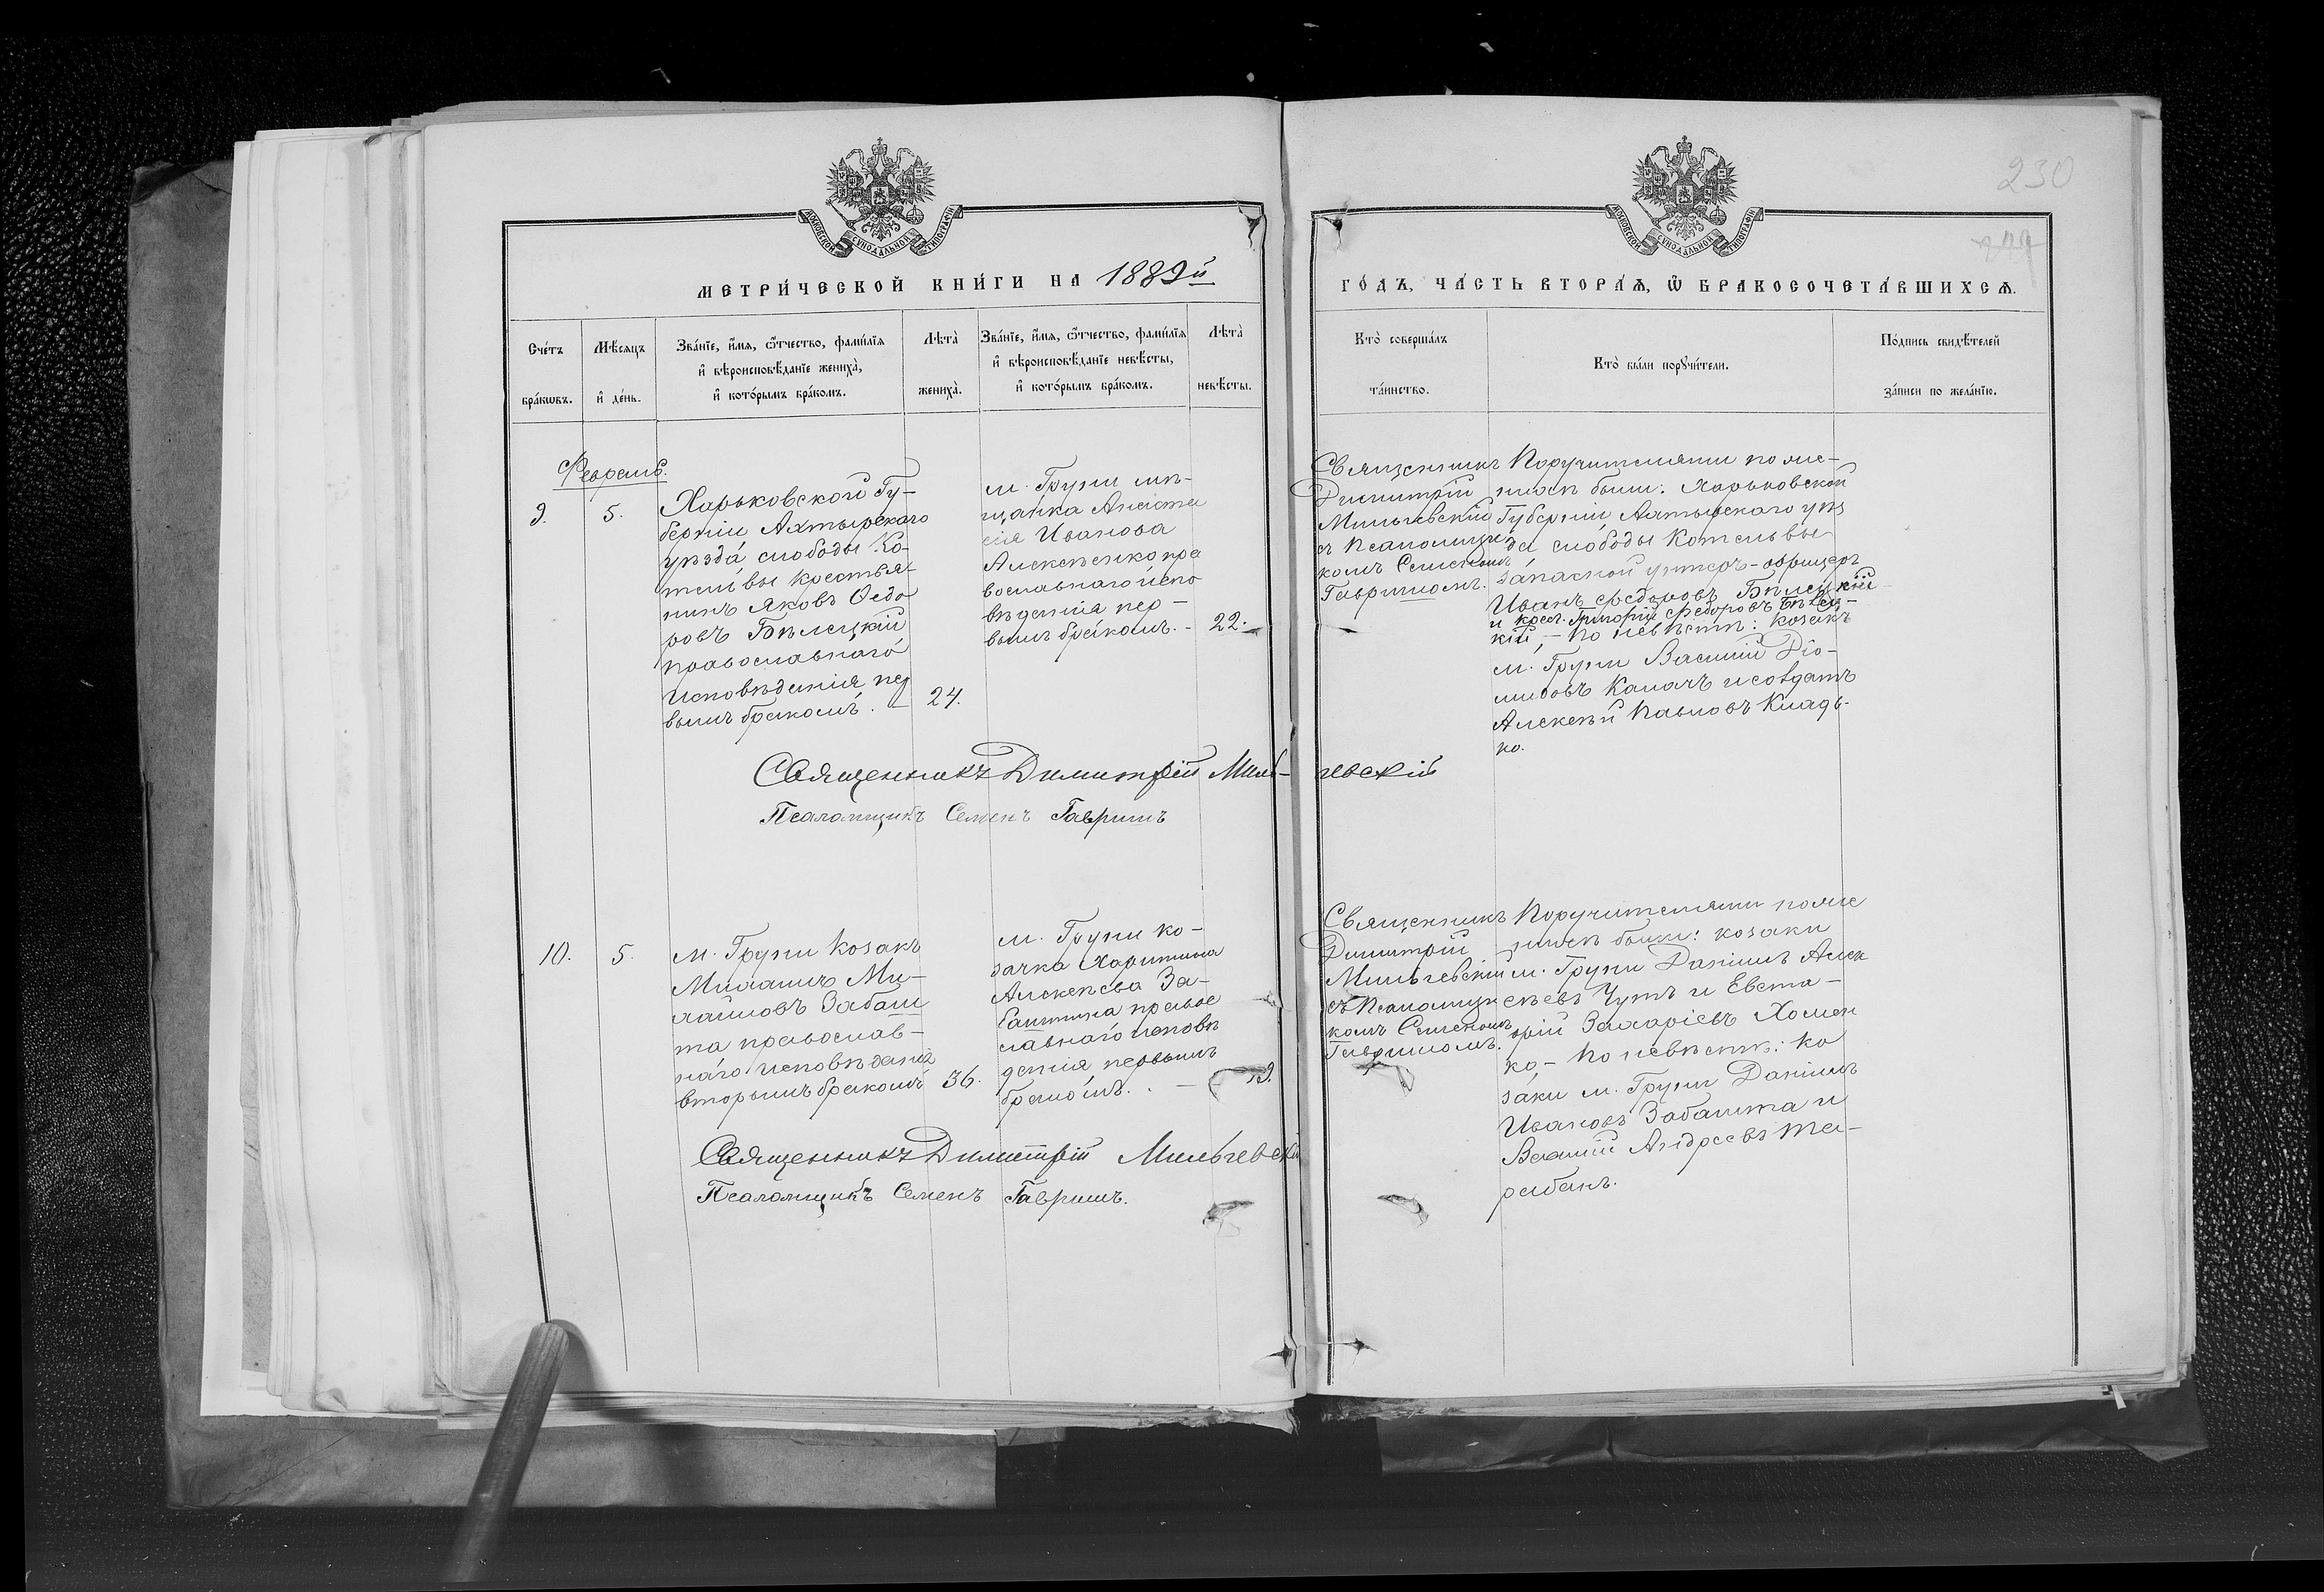 230
МОСКОВСКОЙ СѴНОДАЛЬНОЙ ТИПОГРАФІИ
МОСКОВСКОЙ СѴНОДАЛЬНОЙ ТИПОГРАФІИ
МЕТРИ́ЧЕСКОЙ КНИ́ГИ НА 1889й
ГО́ДЪ, ЧА́СТЬ ВТОРА́Ѧ, Ѿ БРАКОСОЧЕТА́ВШИХСѦ.
Сче́тъ бра́кωвъ.
Мѣ́сяцъ и҆ де́нь.
Зва́нїе, и҆́мя, ѻ҆́тчество, фами́лїя
и҆ вѣроисповѣ́данїе жениха̀,
и҆ кото́рымъ бра́комъ.
Лѣта̀ жениха̀.
Зва́нїе, и҆́мя, ѻ҆́тчество, фами́лїя
и҆ вѣроисповѣ́данїе невѣ́сты,
и҆ кото́рымъ бра́комъ.
Лѣта̀ невѣ́сты.
Кто̀ соверша́лъ
та́инство.
Кто̀ бы́ли порꙋчи́тели.
По́дпись свидѣ́телей
за́писи по жела́нїю.
Февраль.
9.
5.
Харьковской Гу-
берніи Ахтырскаго
уѣзда слободы Ко-
тельвы крестья-
нинъ Яковъ Ѳедо
ровъ Бѣлецкій
православнаго
исповѣданія пер
вымъ бракомъ. –
24.
м. Груни мѣ-
щанка Анаста
сія Иванова
Алексѣенко пра
вославнаго испо
вѣданія пер-
вымъ бракомъ. -
22.
Священникъ
Димитрій
Мильчевскій
съ Псаломщи
комъ Семеномъ
Гавришомъ.
Поручителями по же-
нихѣ были: Харьковской
Губерніи Ахтырскаго уѣз
да слободы Котельвы
запасной унтеръ-офицеръ
Иванъ Федоровъ Бѣлецкій
и крест. Григорій Федоровъ Бѣлец-
кій, – по невѣстѣ: козакъ
м. Груни Василій Діо-
мидовъ Калачъ и солдатъ
Алексѣй Павловъ Кладь-
ко.
Священникъ Димитрій Миль-чевскій
Псаломщикъ Семенъ Гавришъ
10.
5.
м. Груни козакъ
Михаилъ Ми-
хайловъ Забаш
та православ-
наго исповѣданія
вторымъ бракомъ
36.
м. Груни ко-
зачка Харитина
Алексѣева За-
баштина правос
славнаго исповѣ
данія первымъ
бракомъ. . –
19.
Священникъ
Димитрій
Мильчевскій
съ Псаломщи
комъ Семеномъ
Гавришомъ.
Поручителями по же
нихѣ были: козаки
м. Груни Даніилъ Алек
сѣевъ Чутъ и Евста-
фій Захаріевъ Хомен
ко, – по невѣстѣ: ко
заки м. Груни Даніилъ
Ивановъ Забашта и
Василій Андреевъ Та-
рабанъ.
Священникъ Димитрій Мильчевскій
Псаломщикъ Семенъ Гавришъ.